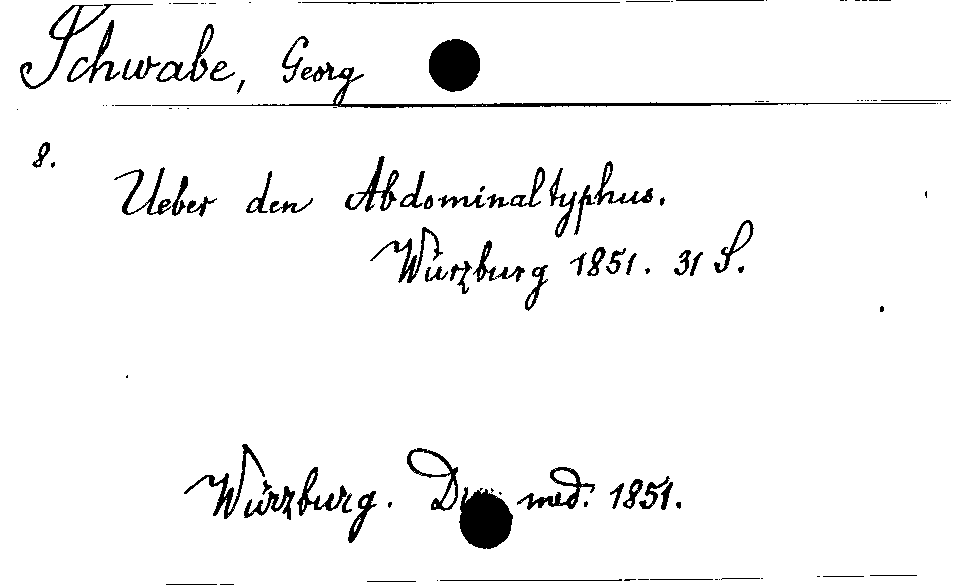 Schwabe, Georg
8.
Ueber den Abdominaltyphus.
Würzburg 1851. 31 S.
Würzburg. med. 1851.